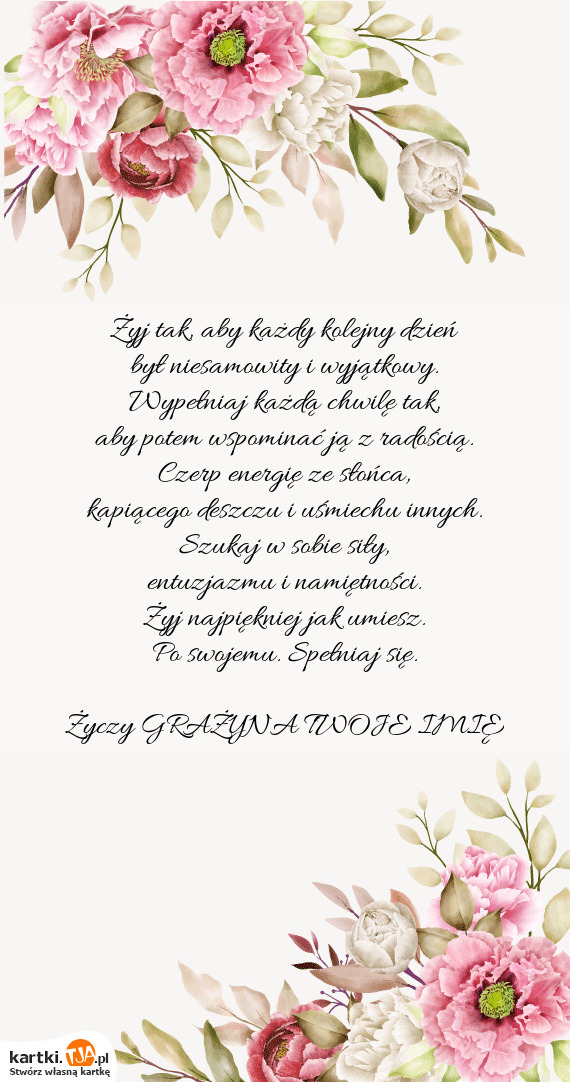 Żyj tak, aby każdy kolejny dzień
był niesamowity i wyjątkowy.
Wypełniaj każdą chwilę tak,
aby potem wspominać ją z radością.
Czerp energię ze słońca,
kapiącego deszczu i uśmiechu innych.
Szukaj w sobie siły,
entuzjazmu i namiętności.
Żyj najpiękniej jak umiesz.
Po swojemu. Spełniaj się.
Życzy GRAŻYNA TWOJE IMIĘ
kartki.TJA.pl
Stwórz własną kartkę